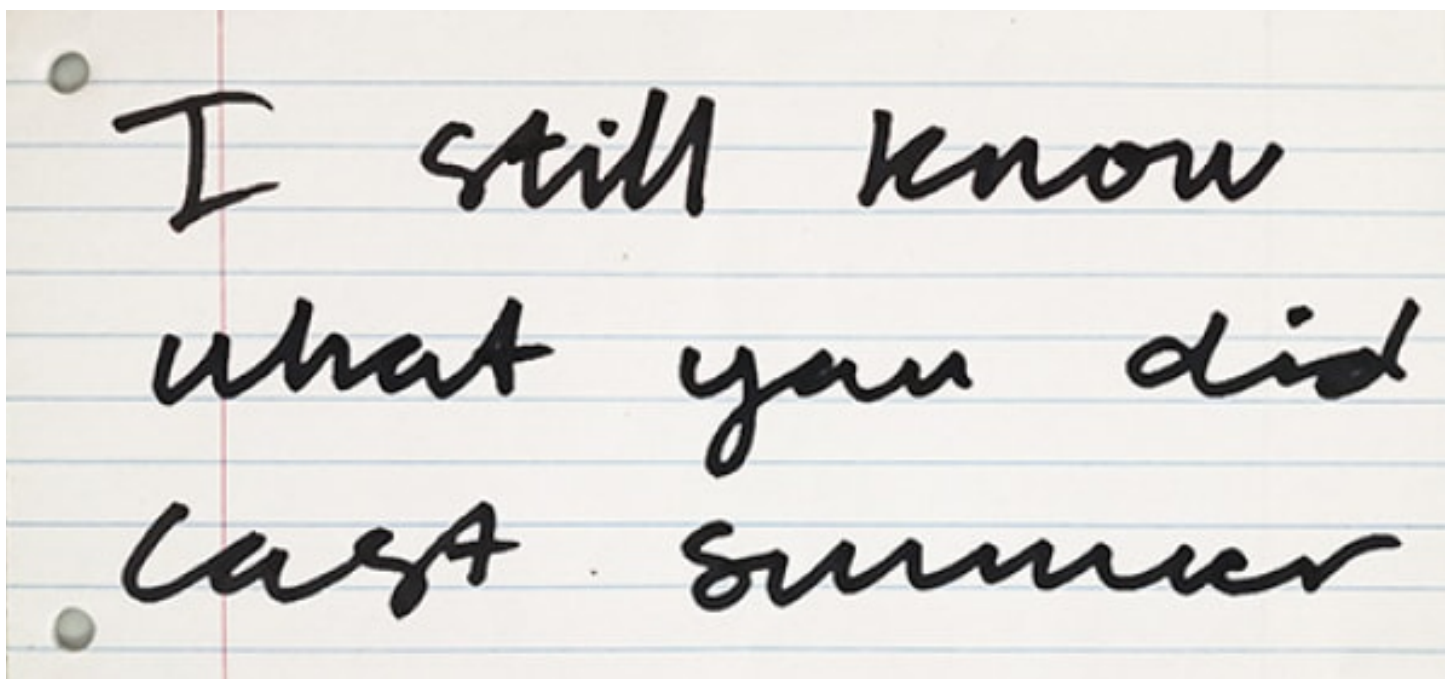 I still know
what you did
last summer